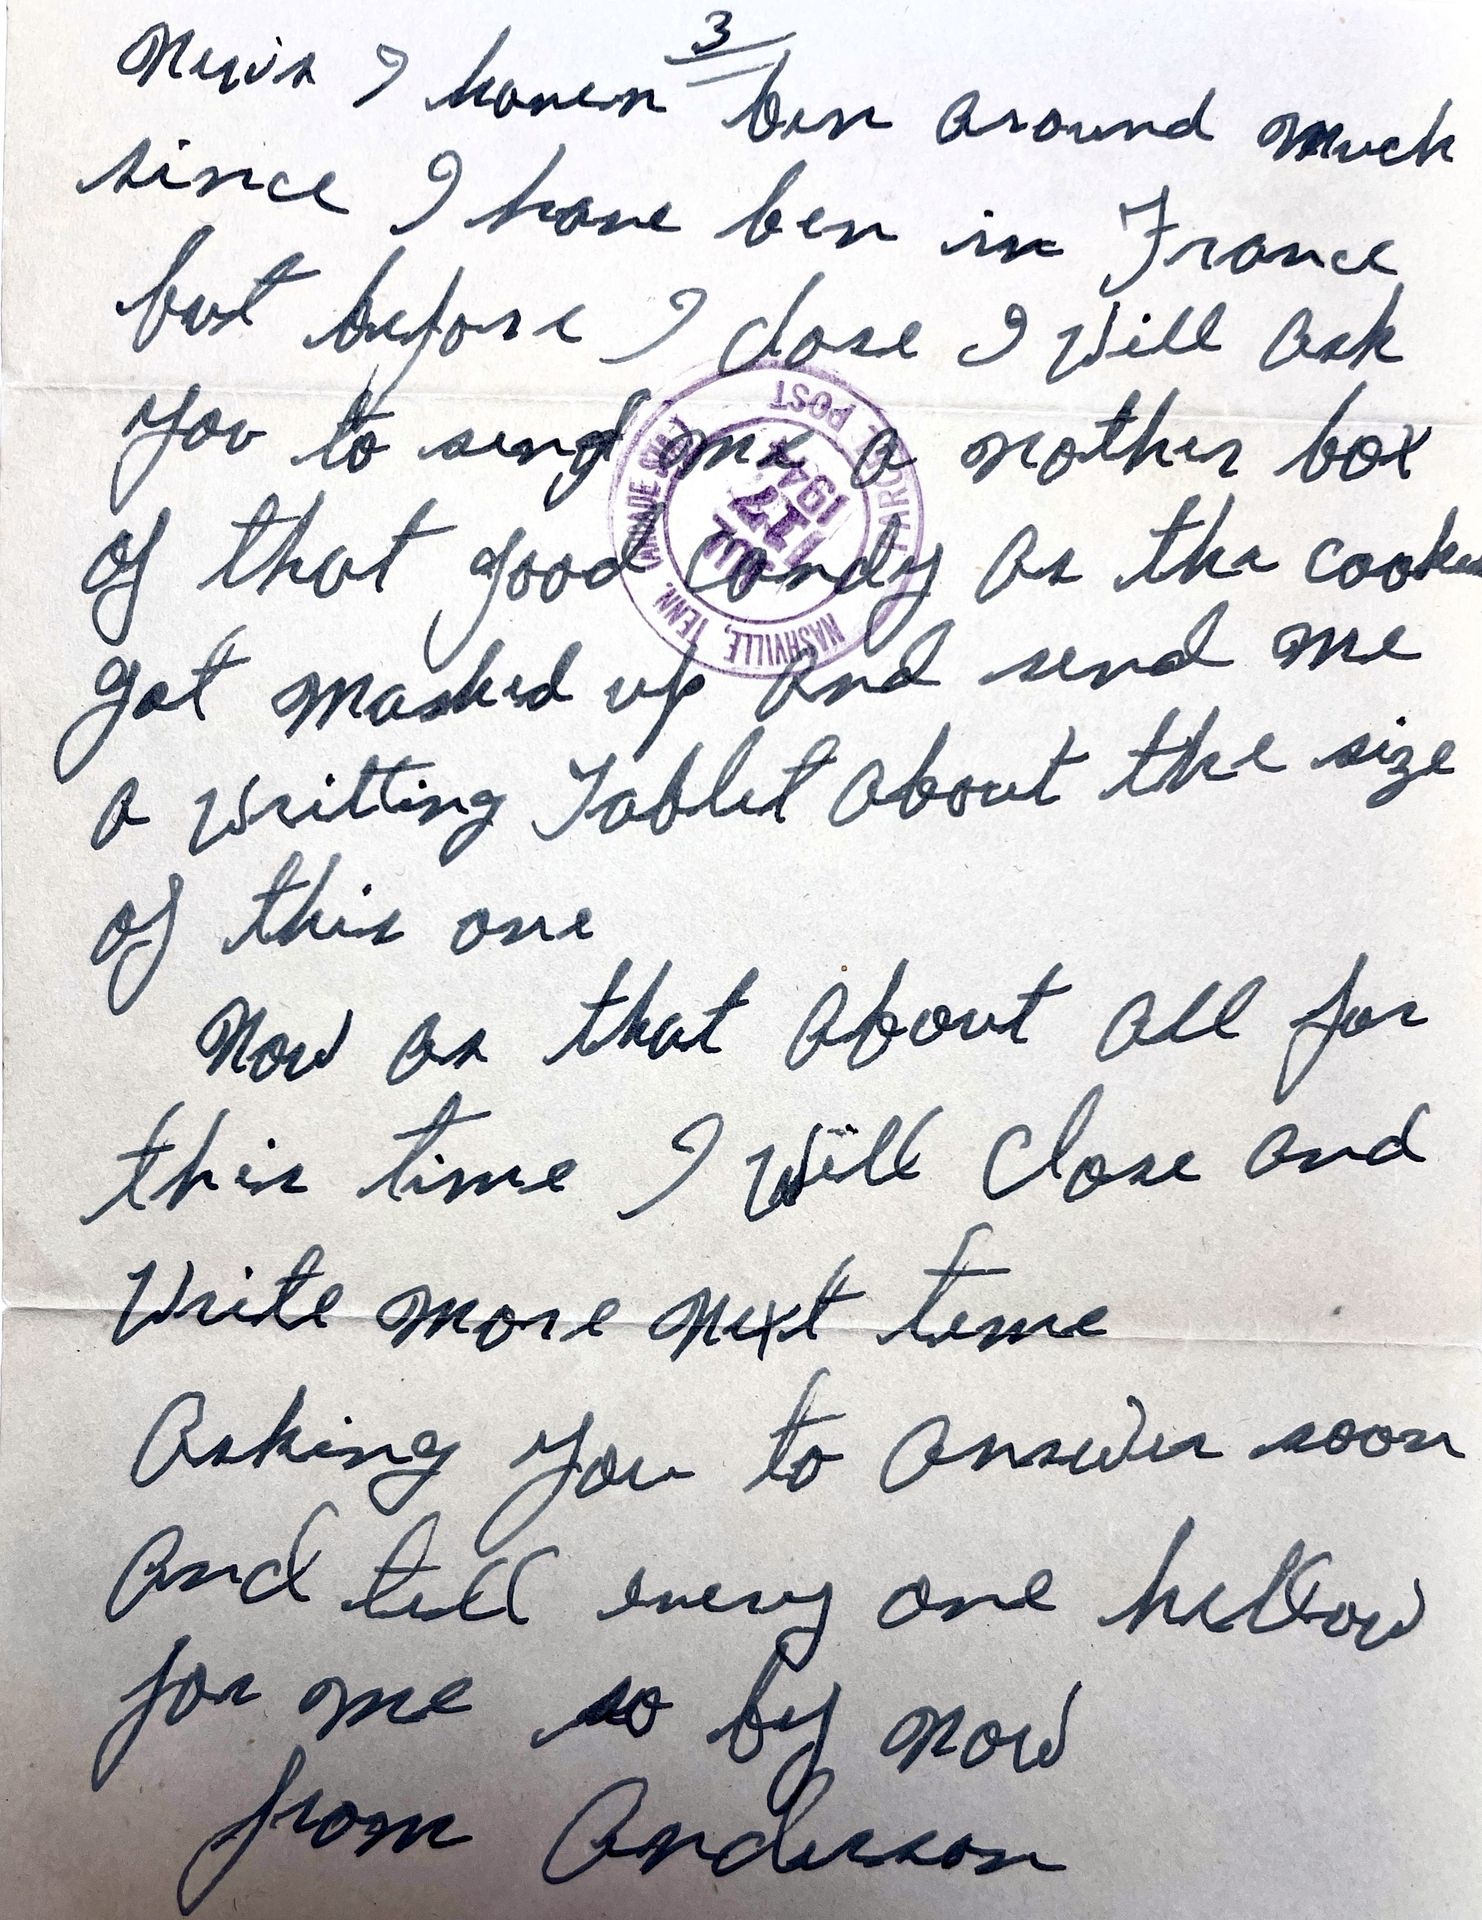 3
News I haven ben around much
since I have ben in France
but before I close I will ask
you to send me a nother box
of that good candy as the cookes
got mashed up and send me
a writting Tablet about the size
of this one
Now as that about all for
this time I will close and
write more next time
asking you to answer soon
and tell every one hellow
for me so by now
from Anderson
NASHVILLE, TENN. ARCADE STA.
PARCEL POST
JUL
17
1944